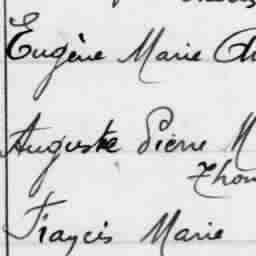 Eugène Marie
Auguste Pierre M
Thom
Francis Marie